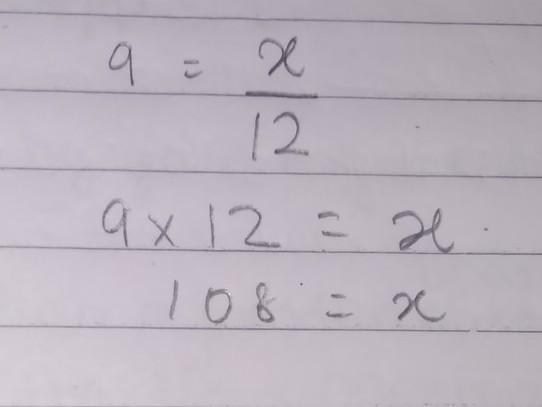 9 = x/12
9 × 12 = x
108 = x